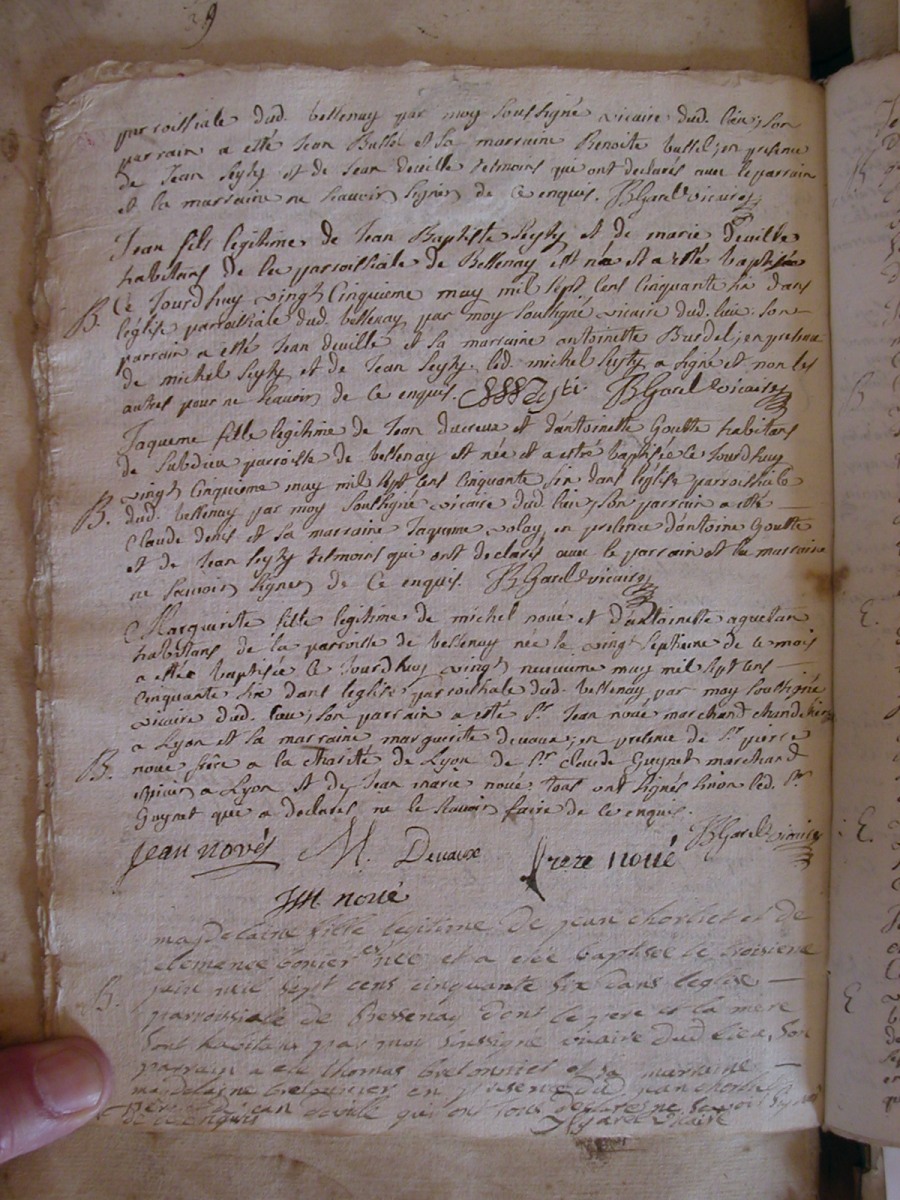 parroissiale dud. bessenay par moy soussigné vicaire dud. lieu; son
parrain a esté Jean Bussel et sa marraine Benoite bussel; en presence
de Jean Seyty et de Jean deville tesmoins qui ont declarés avec le parrain
et la marraine ne scauoir signer de ce enquis. BGarel vicaire
Jean fils legitime de Jean Baptiste Seyty et de marie deville
habitans de la parroissiale de Bessenay est né et a esté baptisé
B. Ce Jourdhuy vingt Cinquieme may mil sept cens Cinquante six dans
leglise parroissiale dud. bessenay par moy soussigné vicaire dud. lieu. son
parrain a esté Jean deville et sa marraine antoinette Burdel; en presence
de michel Seyty et de Jean Seyty led. michel Seyty a signé et non les
autres pour ne scauoir de ce enquis. BGarel vicaire
Jaqueme fille legitime de Jean ducreux et dantoinette Goutte habitans
de parroisse de bessenay est née et a estré baptisée ce Jourdhuy
vingt Cinquieme may mil sept cens cinquante six dans leglise parroissiale
B. dud. bessenay par moy soussigné vicaire dud. lieu; son parrain a esté
Claude denis et sa marraine Jaqueme volay en presence dantoine Goutte
et de Jean Seyty tesmoins qui ont declarés avec le parrain et la marraine
ne scauoir signer de ce enquis. BGarel vicaire
Marguerite fille legitime de michel noué et dantoinette
habitans de la parroisse de bessenay née le vingt septieme de ce mois
a estée baptisée ce Jourdhuy vingt neuvieme may mil sept cens
Cinquante six dans leglise parroissiale dud. bessenay par moy soussigné
vicaire dud. lieu; son parrain a esté Sr. Jean noué marchand
a Lyon et sa marraine marguerite devaux; en presence de Sr. pierre
B. noué frère a la charité de Lyon de Sr. Claude Guynet marchand
epicier a Lyon et de Jean marie noué tous ont signés sinon led. Sr.
Guynet qui a declarés ne le scavoir faire de ce enquis.
BGarel vicaire
Jean Novés M. Devaux frere noué
JM. noué
magdelaine fille legitime de jean et de
clemence née et a esté baptisée le troisieme
B. juin mil sept cens cinquante six dans leglise
parroissiale de Bessenay dont le pere et la mère
sont habitans par moy soussigné vicaire dud. lieu, son
parrain a esté thomas et sa marraine
magdelaine en presence dud. jean
et de jean deville qui ont tous declaré ne scavoir signer
de ce enquis BGarel vicaire